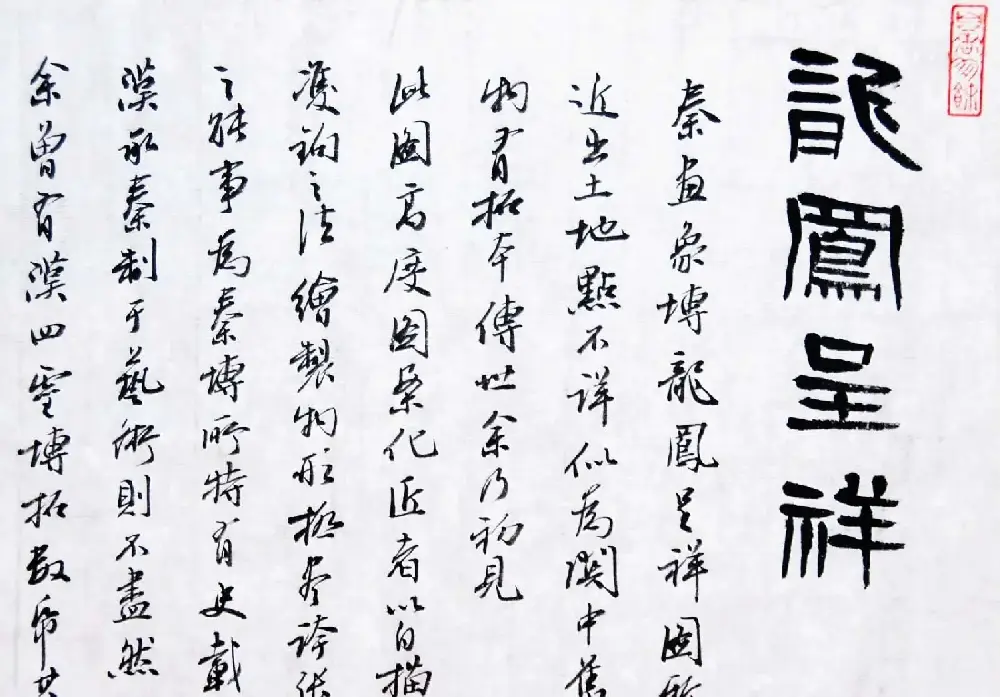 龍鳳呈祥
秦畫象塼龍鳳呈祥圖
近出土地點不詳似為關中舊
物肯拓本傳世余乃初見
此圖高度圖案化匠者以白描
雙鉤之法繪製物形極盡誇張
之能事為秦塼所特有史載
漢承秦制于藝術則不盡然
余曾有漢四靈塼拓數帋其